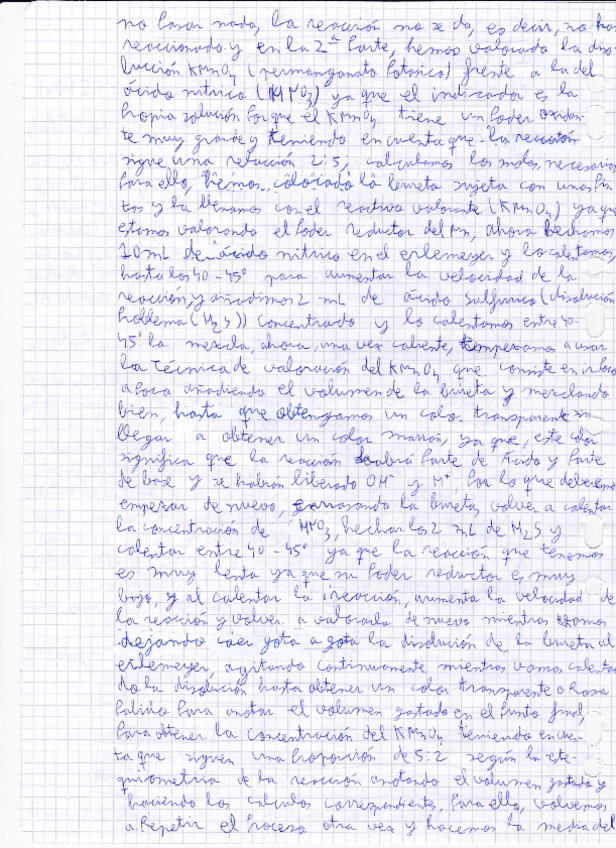 no pasar nada, la reacción no se da, es decir, no ha
reaccionado y en la 2ª parte, hemos valorado la diso-
lución KMnO4 (permanganato potásico) frente a la del
ácido nitrico (HNO3) ya que el indicador es la
propia solución porque el KMnO4 tiene un poder oxidan-
te muy grande y teniendo en cuenta que la reacción
sigue una relación 2:5, calculamos los moles necesarios
para ello, hemos colocado la bureta sujeta con unas pin
zas y la llenamos con el reactivo valorante (KMnO4) ya que
estamos valorando el poder reductor del Mn, ahora hechamos
10 mL de ácido nitrico en el erlemeyer y lo calentamos
hasta los 40-45° para aumentar la velocidad de la
reacción, y añadimos 2 mL de ácido sulfurico (disolución
problema (H2S)) concentrado y lo calentamos entre 40-
45° la mezcla, ahora, una vez caliente, empezamos a usar
la técnica de valoración del KMnO4 que consiste en ir poco
a poco añadiendo el volumen de la bureta y mezclando
bien, hasta que obtengamos un color transparente sin
llegar a obtener un color marrón, ya que, este color
significa que la reacción habrá parte de ácido y parte
de base y se habrán liberado OH- y H+, por lo que deberemos
empezar de nuevo, enrasando la bureta, volver a calentar
la concentración de HNO3, hechar los 2 mL de H2S y
calentar entre 40-45° ya que la reacción que tenemos
es muy lenta ya que su poder reductor es muy
bajo, y al calentar la reacción, aumenta la velocidad de
la reacción y volver a valorarla de nuevo mientras vamos
dejando caer gota a gota la disolución de la bureta al
erlemeyer, agitando continuamente mientras vamos calentan
do la disolución hasta obtener un color transparente o rosa
palido para anotar el volumen gastado en el punto final,
para obtener la concentración del KMnO4 teniendo en cuen-
ta que siguen una proporción de 5:2 según la este-
quiometria de la reacción anotando el volumen gastado y
haciendo los calculos correspondientes. Para ello, volvemos
a repetir el proceso otra vez y hacemos la media del